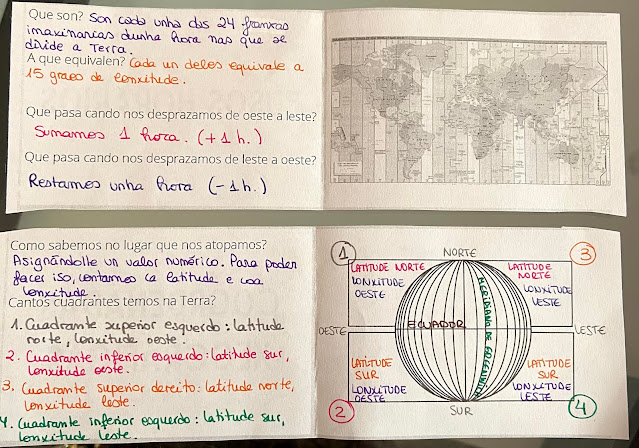 Que son? Son cada unha das 24 franxas
imaxinarias dunha hora nas que se
divide a Terra.
A que equivalen? Cada un deles equivale a
15 graos de lonxitude.
Que pasa cando nos desprazamos de oeste a leste?
Sumamos 1 hora. (+1 h.)
Que pasa cando nos desprazamos de leste a oeste?
Restamos unha hora (-1h.)
Como sabemos no lugar que nos atopamos?
Asignándolle un valor numérico. Para poder
facer iso, contamos ca latitude e coa
lonxitude.
Cantos cuadrantes temos na Terra?
1. Cuadrante superior esquerdo: latitude
norte, lonxitude oeste.
2. Cuadrante inferior esquerdo: latitude sur,
lonxitude oeste.
3. Cuadrante superior dereito: latitude norte,
lonxitude leste.
4. Cuadrante inferior esquerdo: latitude sur,
lonxitude leste.
1
NORTE
3
LATITUDE NORTE
LONXITUDE
OESTE
LATITUDE
NORTE
LONXITUDE
LESTE
OESTE
ECUADOR
MERIDIANO DE GREENWICH
LESTE
LATITUDE
SUR
LONXITUDE
OESTE
LATITUDE
SUR
LONXITUDE
LESTE
2
SUR
4